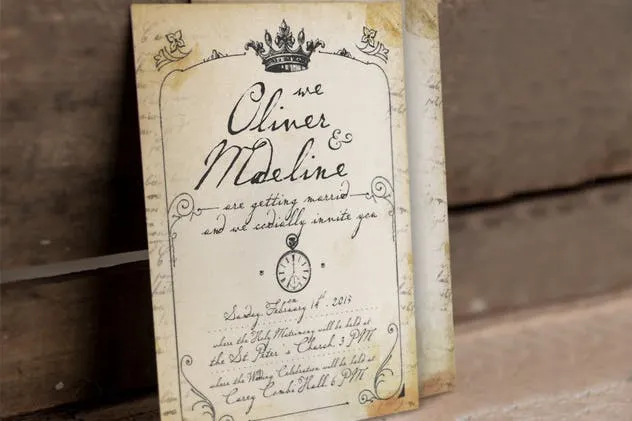 we
Oliver
&
Madeline
are getting married
and we cordially invite you
on
Sunday, February 14th, 2015
where the Holy Matrimony will be held at
the St Peter's Church 3 PM
where the Wedding Celebration will be held at
Carey Combe Hall 6 PM